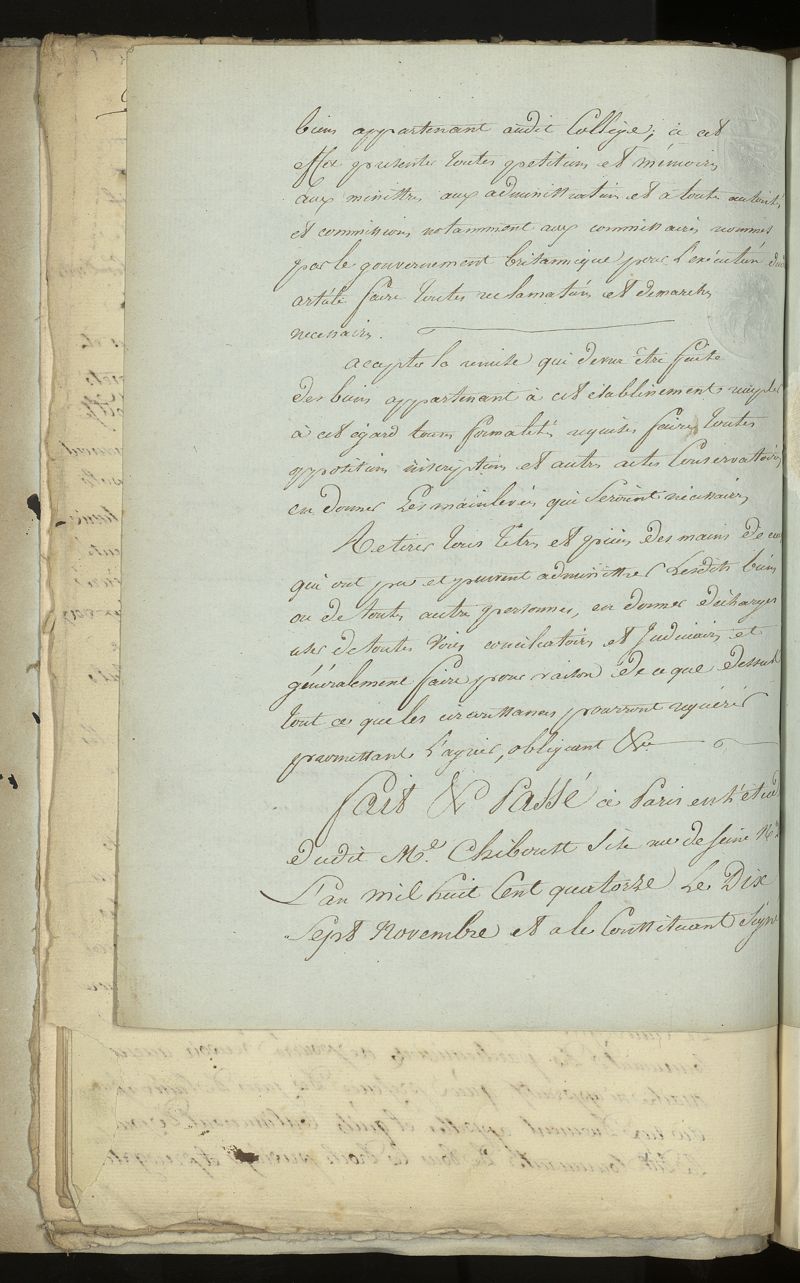 biens appartenant audit Collége; à cet
effet presenter toutes petitions et mémoires
aux ministres aux administrations et a toutes autorités
et commissions notamment aux commissaires nommés
par le gouvernement britannique pour l'exécution dudit
article faire toutes reclamations et demarches
necessaires.
accepter la remise qui devra être faite
des biens appartenant à cet établissement remplir
à cet égard toutes formalités requises faire toutes
oppositions inscriptions et autres actes Conservatoires
en donner les mainlevées qui seroient nécessaires
Retirer tous titres et pièces des mains de ceux
qui ont pu et peuvent administrer lesdits biens
ou de toutes autres personnes, en donner décharges
user de toutes voies conciliatoires et Judiciaires et
généralement faire pour raison de ce que dessus
tout ce que les circonstances pourront requérir
promettant l'agréer, obligeant &a
fait & Passé à Paris en l'étude
dudit Me. Chiboust Sise rue de Seine No
L'an mil huit Cent quatorze Le Dix
Sept Novembre et a le Constituant Signé